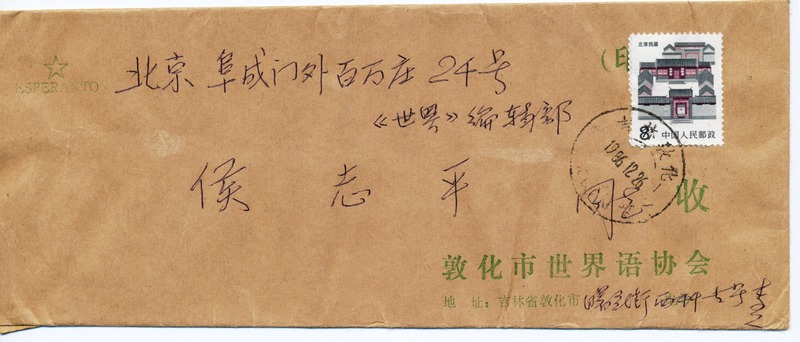 ESPERANTO
北京阜成门外百万庄24号
(印
《世界》编辑部
侯志平 同志 收
北京民居
8
中国人民邮政
吉林敦化
1986.12.26
敦化市世界语协会
地址:吉林省敦化市